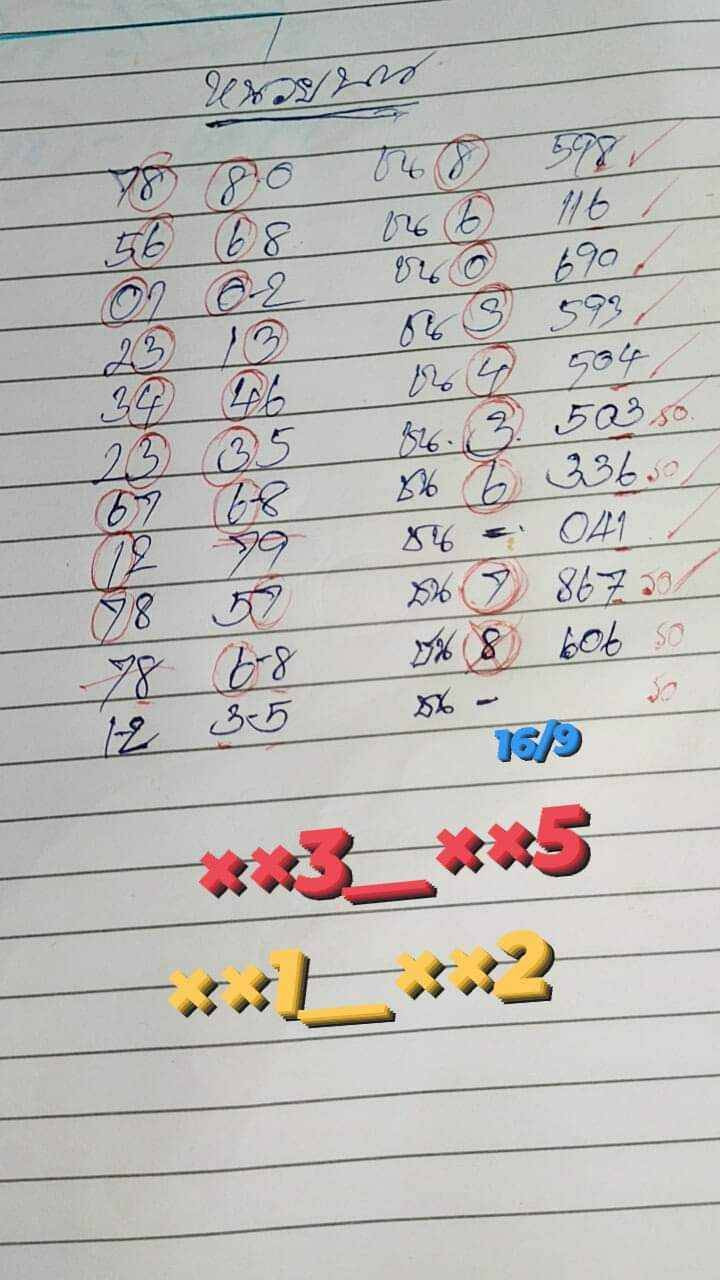 หน่วยบน
78 80 ชน 8 598 ✓
56 68 ชน 6 116 ✓
01 0-2 ชน 0 690 ✓
23 13 ชน 3 593 ✓
34 46 ชน 4 504 ✓
23 35 ชน. 3. 503 50.
67 6-8 ชน 6 336 50 ✓
12 79 ชน = 041 ✓
78 57 ชน 7 867 50 ✓
78 6-8 ชน 8 606 50
1-2 3-5 ชน - 50
16/9
××3_××5
××1_××2